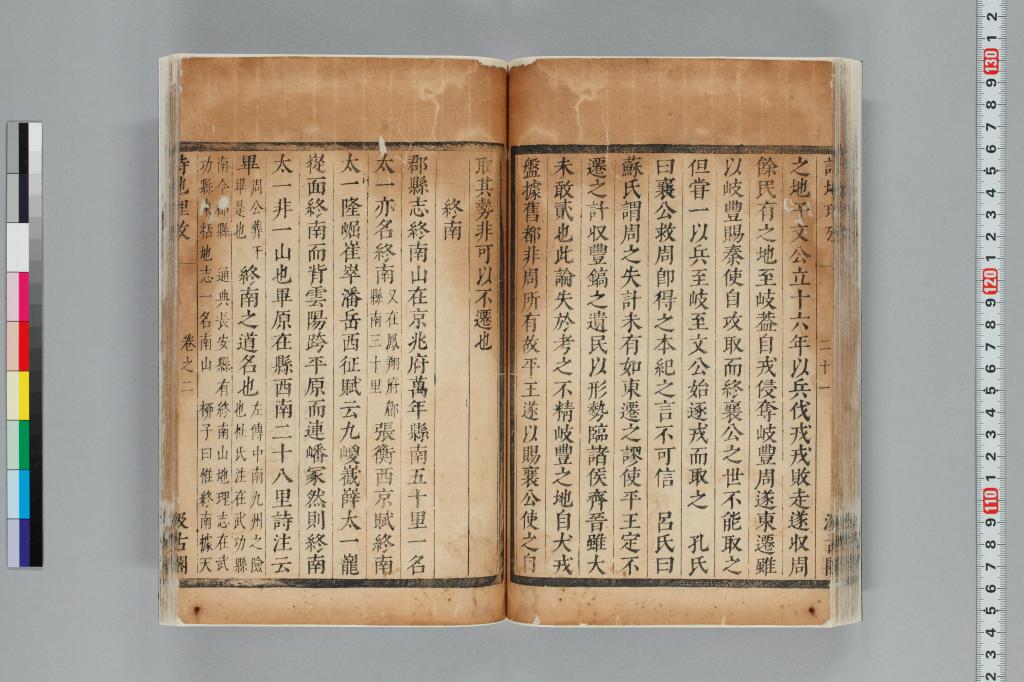 之地子文公立十六年以兵伐戎戎敗走遂収周
餘民有之地至岐葢自戎侵奪岐豐周遂東遷雖
以岐豐賜秦使自攻取而終襄公之世不能取之
但嘗一以兵至岐至文公始逐戎而取之　孔氏
曰襄公救周卽得之本紀之言不可信　呂氏曰
蘇氏謂周之失計未有如東遷之謬使平王定不
遷之計収豐鎬之遺民以形勢臨諸侯齊晉雖大
未敢貳也此論失於考之不精岐豐之地自犬戎
盤據舊都非周所有故平王遂以賜襄公使之自
取其勢非可以不遷也
終南
郡縣志終南山在京兆府萬年縣南五十里一名
太一亦名終南又在鳳翔府郿縣南三十里張衡西京賦終南
太一隆崛崔崒潘岳西征賦云九嵕嶻嶭太一巃
嵸面終南而背雲陽跨平原而連嶓冢然則終南
太一非一山也畢原在縣西南二十八里詩注云
畢周公葬于畢是也終南之道名也左傳中南九州之險也杜氏注在武功縣
南　通典長安縣有終南山地理志在武
功縣　括地志一名南山　柳子曰惟終南據天
詩地理攷　卷之二　汲古閣
二十一